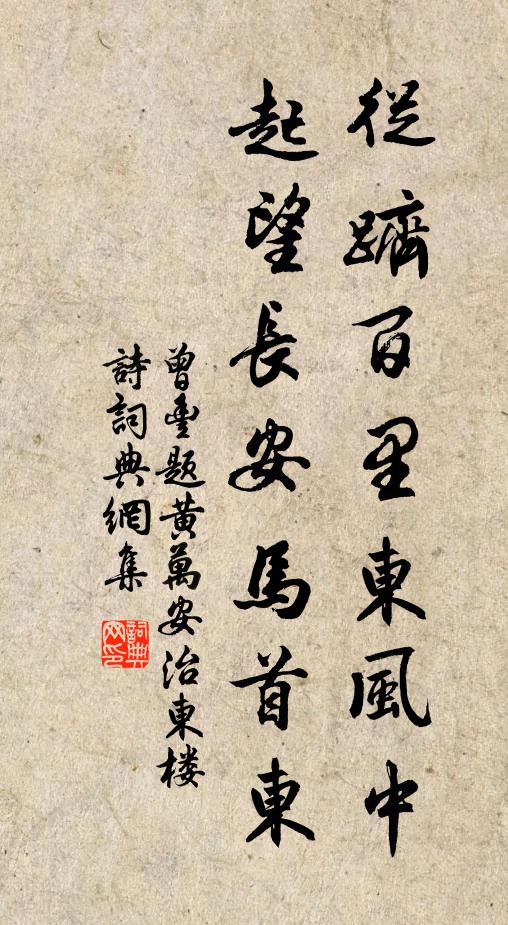 從躋百里東風中
起望長安馬首東
曾豊題黃萬安治東楼
詩詞典網集
詞典网印